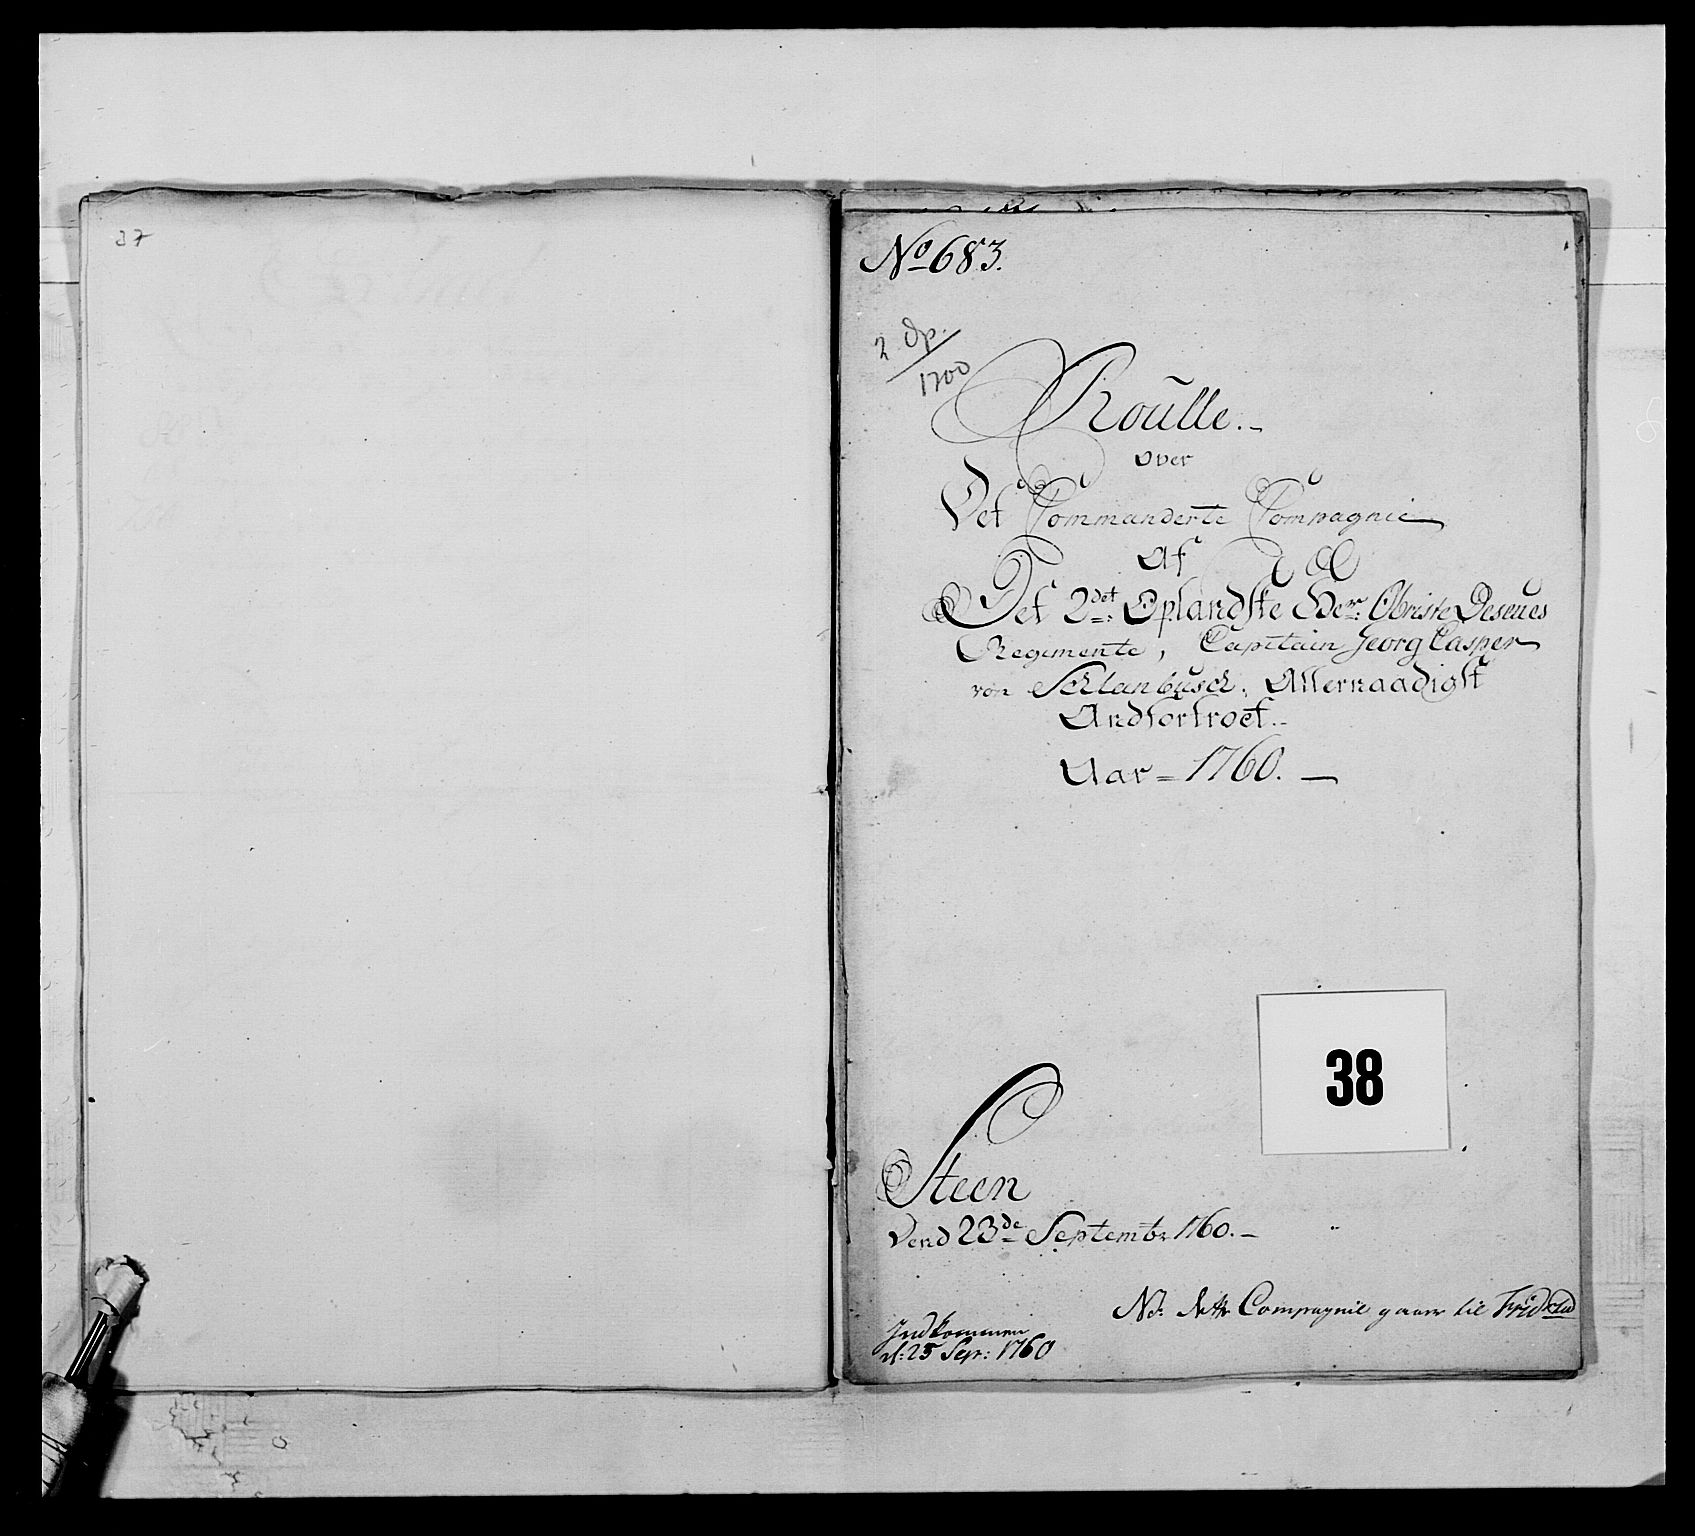 37
No 683.
2. Op.
1700
Roulle.
over
Det Commanderte Compagnie
Af
Det 2det Oplandske Her: Obriste Deseues
Regimente, Capitain Georg Casper
von Schlanbusch, Allernaadigst
Andfortroet.
Aar = 1760.
38
Steen
Dend 23de Septembr 1760.
No: dette Compagnie gaaer til
Indkommen
d: 25 Sepr: 1760